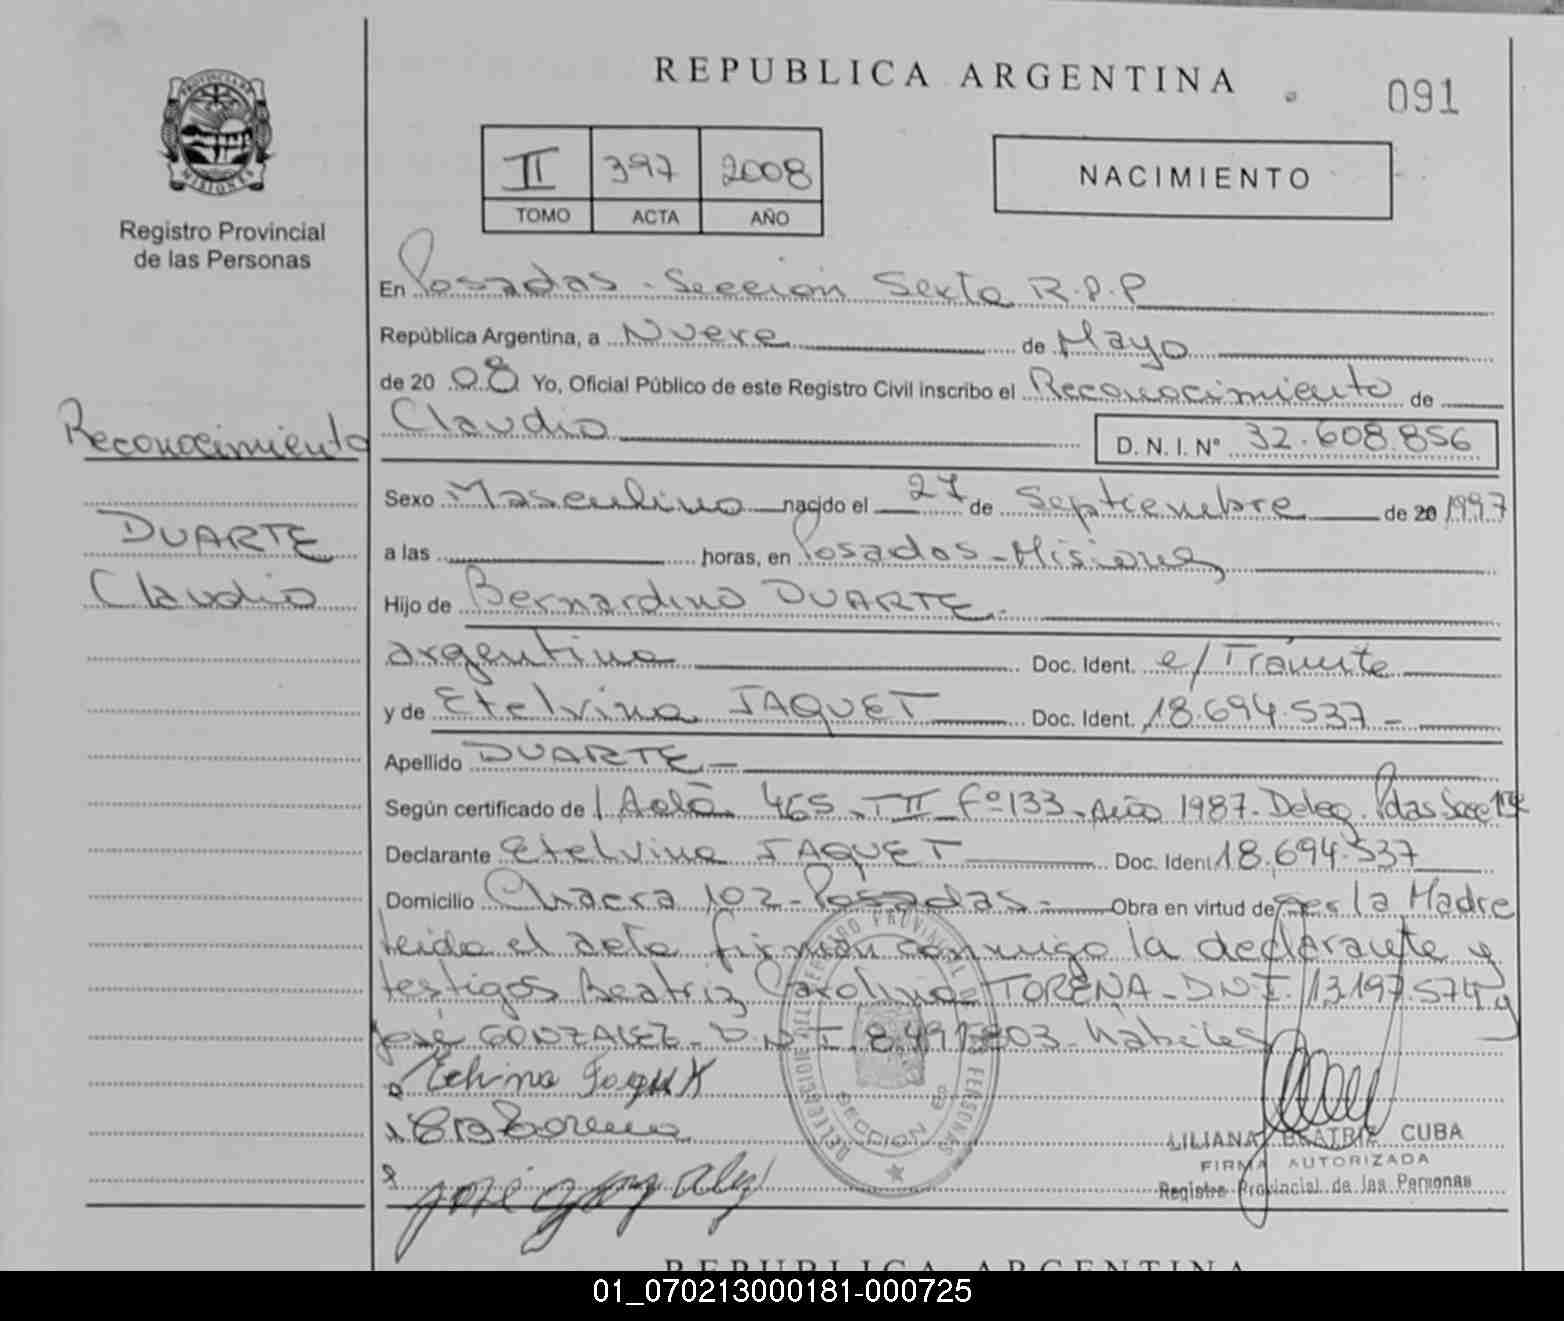 REPUBLICA ARGENTINA
091
PROVINCIA DE MISIONES
Registro Provincial
de las Personas
II 397 2008
TOMO ACTA AÑO
NACIMIENTO
En Posadas - Seccion Sexta R.P.P
República Argentina, a Nueve de Mayo
de 20 08 Yo, Oficial Público de este Registro Civil inscribo el Reconocimiento de
Claudio D. N. I. Nº 32.608.856
Reconocimiento
DUARTE
Claudio
Sexo Masculino nacido el 27 de Septiembre de 20 1997
a las horas, en Posadas - Misiones
Hijo de Bernardino DUARTE.
argentino Doc. Ident. e/Trámite
y de Etelvina JAQUET Doc. Ident. 18.694.537 -
Apellido DUARTE -
Según certificado de Acta 465 - TII Fº 133 - Año 1987 - Deleg. Pdas Secc
Declarante Etelvina JAQUET Doc. Ident 18.694.537
Domicilio Chacra 102 - Posadas - Obra en virtud de ser la Madre
leido el acta firman conmigo la declarante y
testigos Beatriz Carolina TORENA - DNI. 13.197.574 y
José GONZALEZ - D.N.I. 8.491.803 - hábiles
LILIANA BEATRIZ CUBA
FIRMA AUTORIZADA
Registro Provincial de las Personas
jose gonzalez
REPUBLICA ARGENTINA
01_070213000181-000725